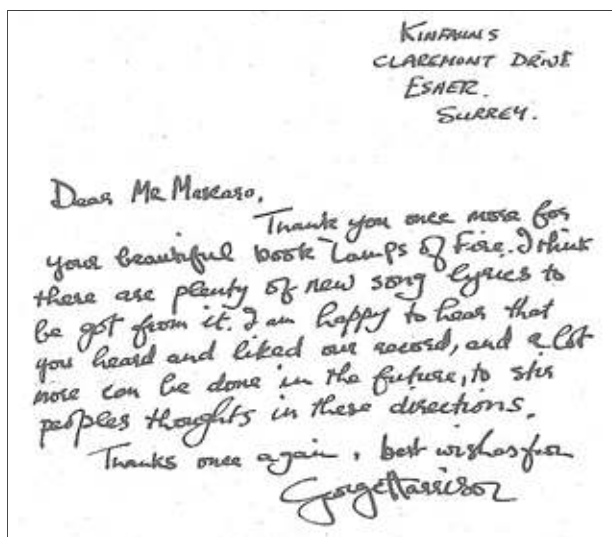 KINFAUNS
CLAREMONT DRIVE
ESHER.
SURREY.
Dear Mr Mascaro,
Thank you once more for
your beautiful book Lamps of Fire. I think
there are plenty of new song lyrics to
be got from it. I am happy to hear that
you heard and liked our record, and a lot
more can be done in the future, to stir
peoples thoughts in these directions.
Thanks once again, best wishes from
George Harrison